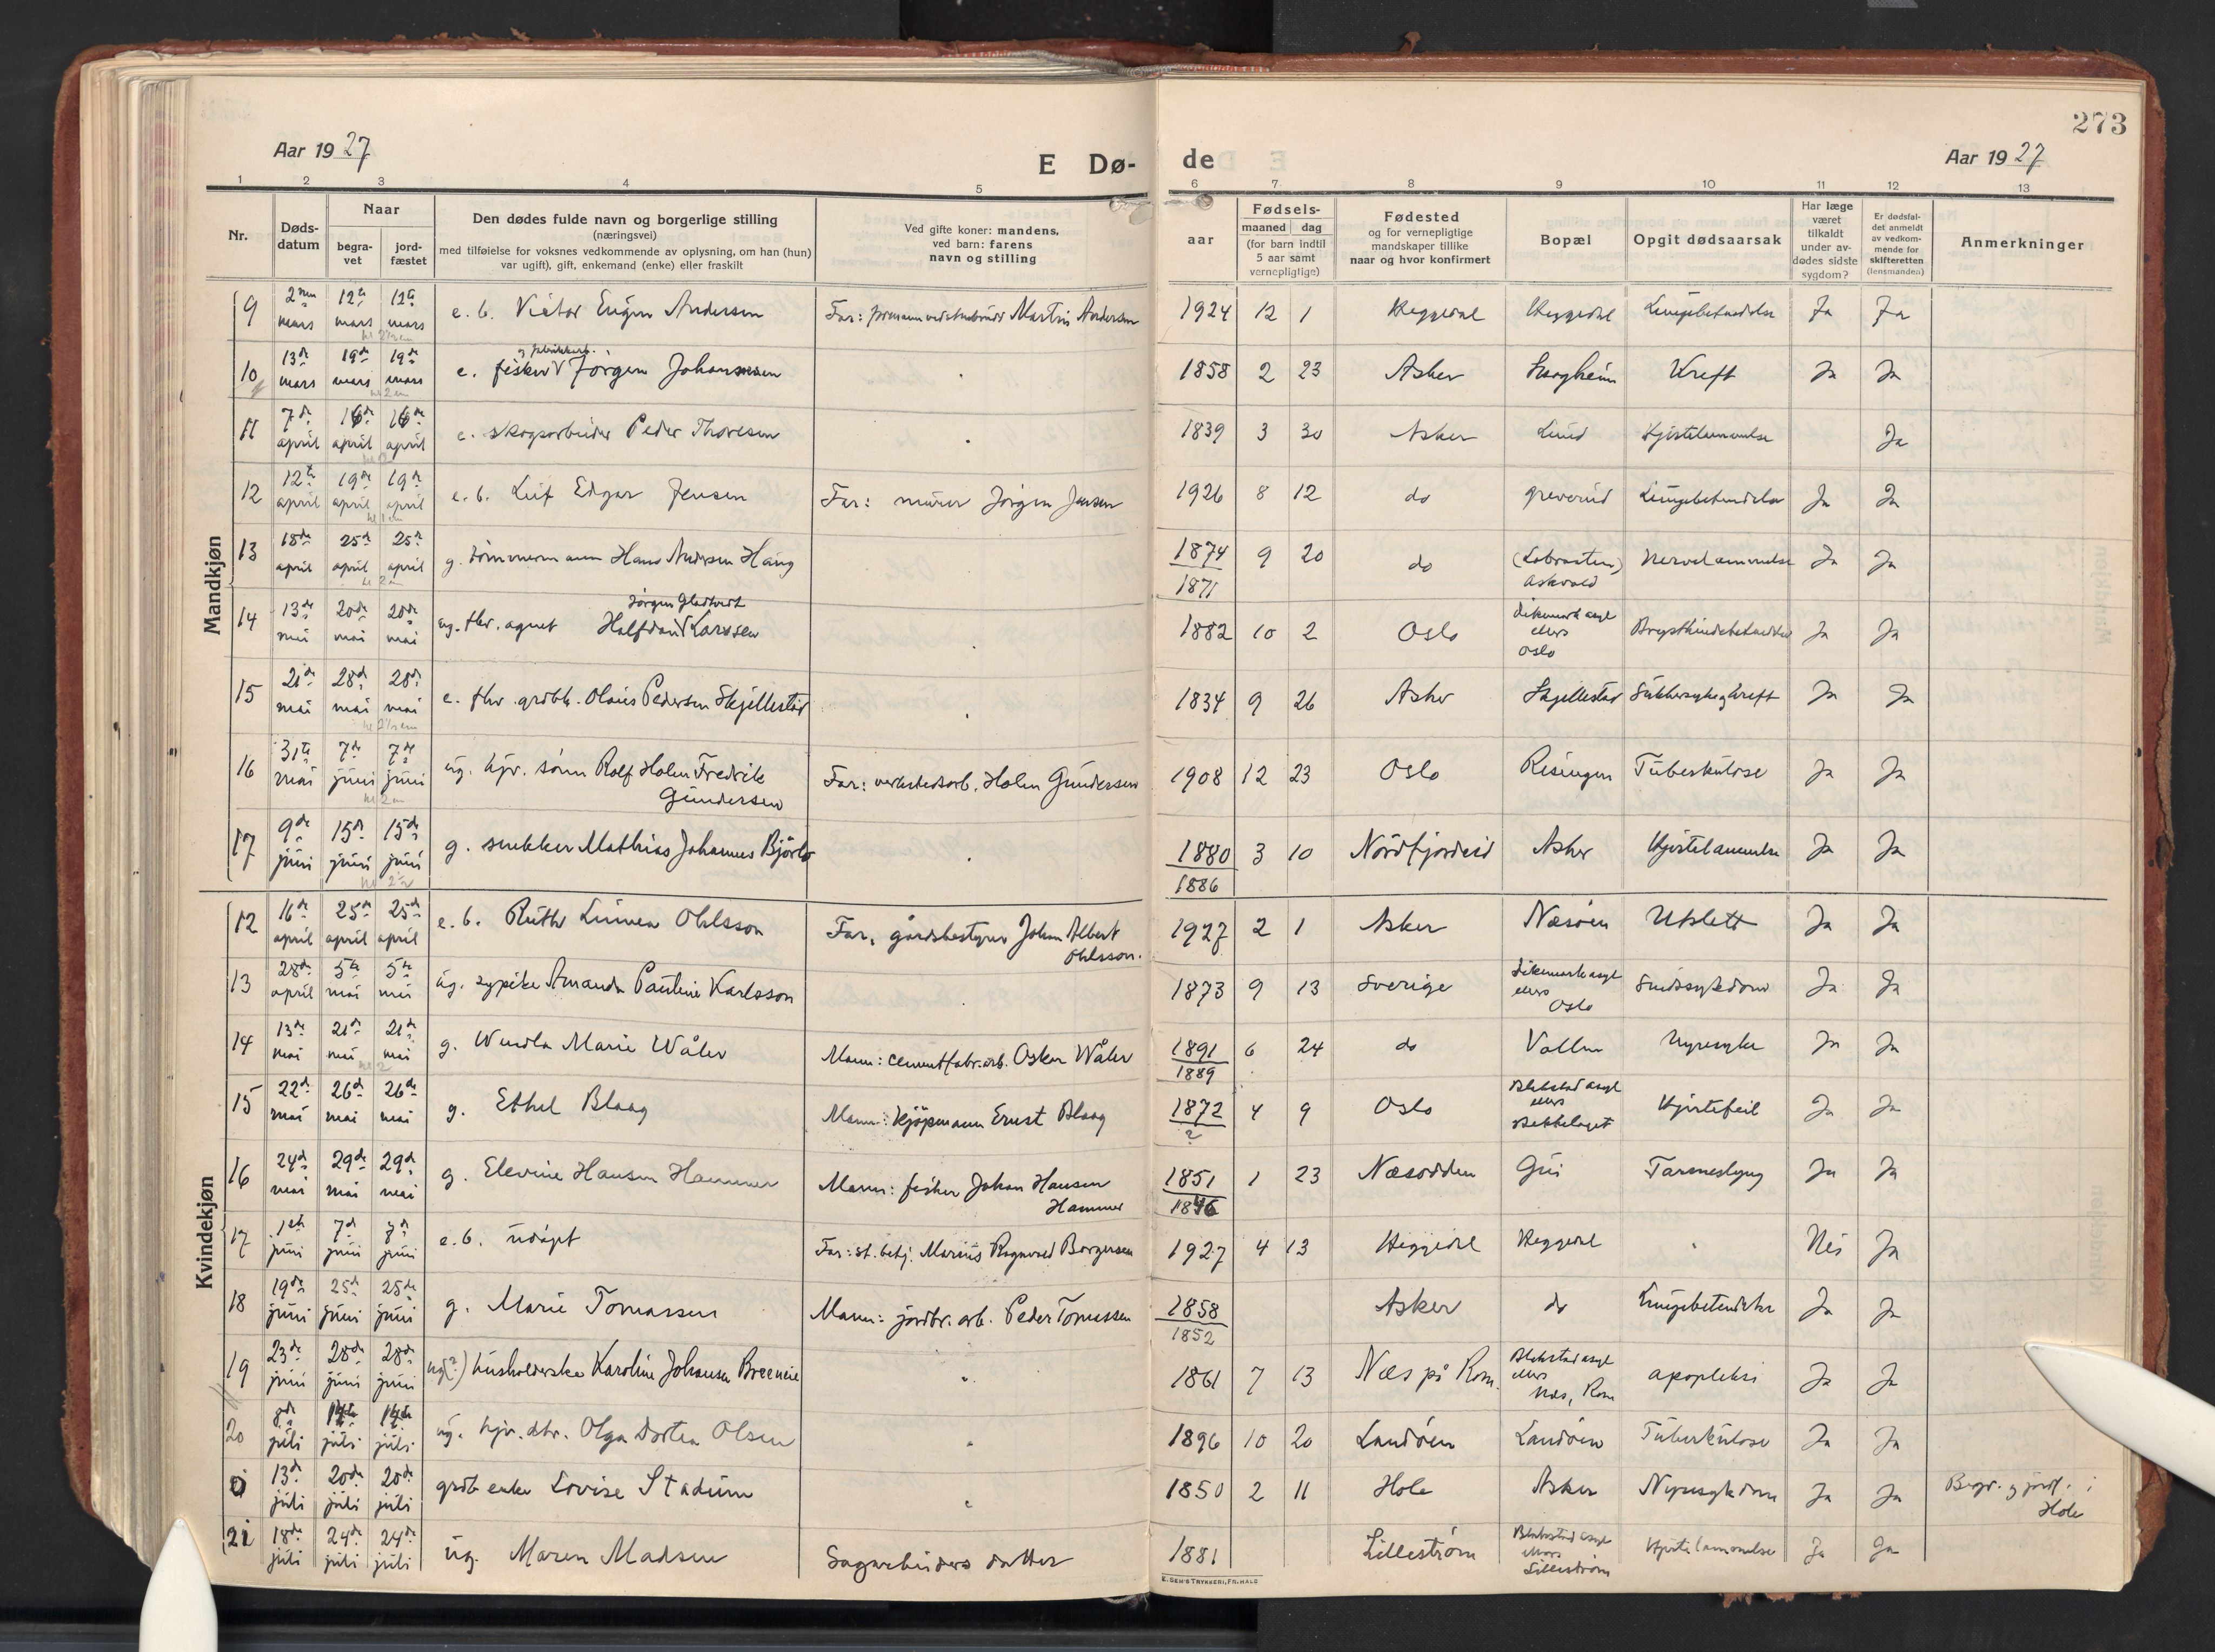 273
Aar 1927
E Dø-
de
Aar 1927
1 2 3 4 5
6 7 8 9 10 11 12 13
Nr.
Døds-
datum
Naar
begra-
vet
jord-
fæstet
Den dødes fulde navn og borgerlige stilling
(næringsvei)
med tilføielse for voksnes vedkommende av oplysning, om han (hun)
var ugift), gift, enkemand (enke) eller fraskilt
Ved gifte koner: mandens,
ved barn: farens
navn og stilling
aar
Fødsels-
maaned dag
(for barn indtil
5 aar samt
vernepligtige)
Fødested
og for vernepligtige
mandskaper tillike
naar og hvor konfirmert
Bopæl
Opgit dødsaarsak
Har læge
været
tilkaldt
under av-
dødes sidste
sygdom?
Er dødsfal-
det anmeldt
av vedkom-
mende for
skifteretten
(lensmanden)
Anmerkninger
Mandkjøn
9 mars 12te mars 12te mars e. b. Victor Eugen Andersen Far: Martin Andersen 1924 12 1 Heggedal Heggedal Lungebetændelse Ja Ja
10 13de mars 19de mars 19de mars e. fisker Jørgen Johannesen 1858 2 23 Asker Kreft Ja Ja
11 7de april 16de april 16de april e. skogsarbeider Peder Thoresen 1839 3 30 Asker Lund Hjertelammelse Ja
12 12te april 19de april 19de april e. b. Leif Edgar Jensen Far: murer Jørgen Jensen 1926 8 12 do greverud Lungebetændelse Ja Ja
13 18de april 25de april 25de april g. tømmermann Hans Andersen Haug 1874 9 20 do Ja Ja
1871 Askvold
Jørgen Gladtvedt
14 13de mai 20de mai 20de mai ug. fhv. agent Halfdan Larssen 1882 10 2 Oslo Dikemark asyl ellers Oslo Brysthindebetændelse Ja Ja
15 21de mai 28de mai 28de mai e. fhv. grdbr. Olaus Pedersen Skjellestad 1834 9 26 Asker Skjellestad Sukkersyke og kreft Ja Ja
16 31te mai 7de juni 7de juni ug. hjv. sønn Rolf Holm Fredrik Gundersen Far: verkstedsarb. Holm Gundersen 1908 12 23 Oslo Risingen Tuberkulose Ja Ja
17 9de juni 15de juni 15de juni g. snekker Mathias Johannes Bjørlo 1880 3 10 Nordfjordeid Asker Hjertelammelse Ja Ja
1886
Kvindekjøn
12 16de april 25de april 25de april e. b. Ruth Linnea Ohlsson Far, gårdsbestyrer Johan Albert Ohlsson. 1927 2 1 Asker Næsøen Utslett Ja Ja
13 28de april 5te mai 5te mai ug. sypike Amanda Pauline Karlsson 1873 9 13 Sverige Dikemark asyl ellers Oslo Sindssykdom Ja Ja
14 13de mai 21de mai 21de mai g. Marie Wåler Mann: cementfabr.arb. Oskar Wåler 1891 6 24 do Vollen Nyresyke Ja Ja
1889
15 22de mai 26de mai 26de mai g. Ethel Blaag Mann: kjøpmann Ernst Blaag 1872 4 9 Oslo Blakstad asyl ellers Bekkelaget Hjertefeil Ja Ja
?
16 24de mai 29de mai 29de mai g. Elevine Hansen Hammer Mann: fisker Johan Hansen Hammer 1851 1 23 Næsodden Tarmeslyng Ja Ja
1846
17 1ste juni 7de juni 8de juni e. b. udøpt Far: st. betj. Marius Ragnvald Borgersen 1927 4 13 Heggedal Heggedal Nei Ja
18 19de juni 25de juni 25de juni g. Marie Tomassen Mann: jordbr. arb. Peder Tomassen 1858 Asker do Lungebetændelse Ja Ja
1852
19 23de juni 28de juni 28de juni ug(?) husholderske Karoline Johansen 1861 7 13 Næs på Rom. Blakstad asyl ellers Næs, Rom apopleksi Ja Ja
20 8de juli 14de juli 14de juli ug. hjv. dtr. Olga Dortea Olsen 1896 10 20 Landøen Landøen Tuberkulose Ja Ja
0 13de juli 20de juli 20de juli grdb enke Lovise Stadum 1850 2 11 Hole Asker Nyresykdom Ja Ja Begr. og jordf. i Hole
21 18de juli 24de juli 24de juli ug. Maren Madsen Sagarbeiders datter 1881 Lillestrøm Blakstad asyl ellers Lillestrøm Hjertelammelse Ja Ja
E. SEM'S TRYKKERI, FR.HALD